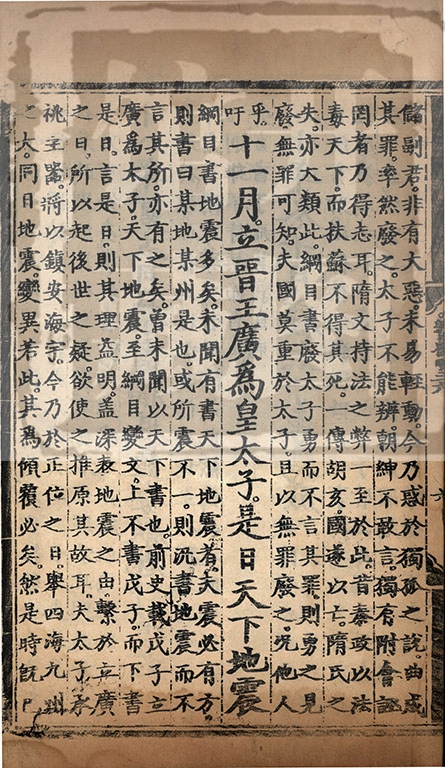 儲副君非有大惡未易輕動今乃惑於獨孤之說曲成
其罪率然廢之太子不能辨朝紳不敢言獨有附會
罔者乃得志耳隋文持法之弊一至於此昔秦政以法
毒天下而扶蘇不得其死一傳胡亥國遂以亡隋氏之
失亦大類此綱目書廢太子勇而不言其罪則勇之見
廢無罪可知夫國莫重於太子且以無罪廢之況他人
乎吁
十一月立晉王廣為皇太子是日天下地震
綱目書地震多矣未聞有書天下地震者夫震必有方
則書曰某地某州是也或所震不一則汎書地震而不
言其所亦有之矣曾未聞以天下書也前史載戊子立
廣為太子天下地震至綱目變文上不書戊子而下書
是日言是日則其理益明蓋深表地震之由繫於立廣
之日所以起後世之疑欲使之推原其故耳夫太子承
祧主器將以鎮安海宇今乃於正位之日舉四海九州
之大同日地震變異若此其為傾覆必矣然是時旣